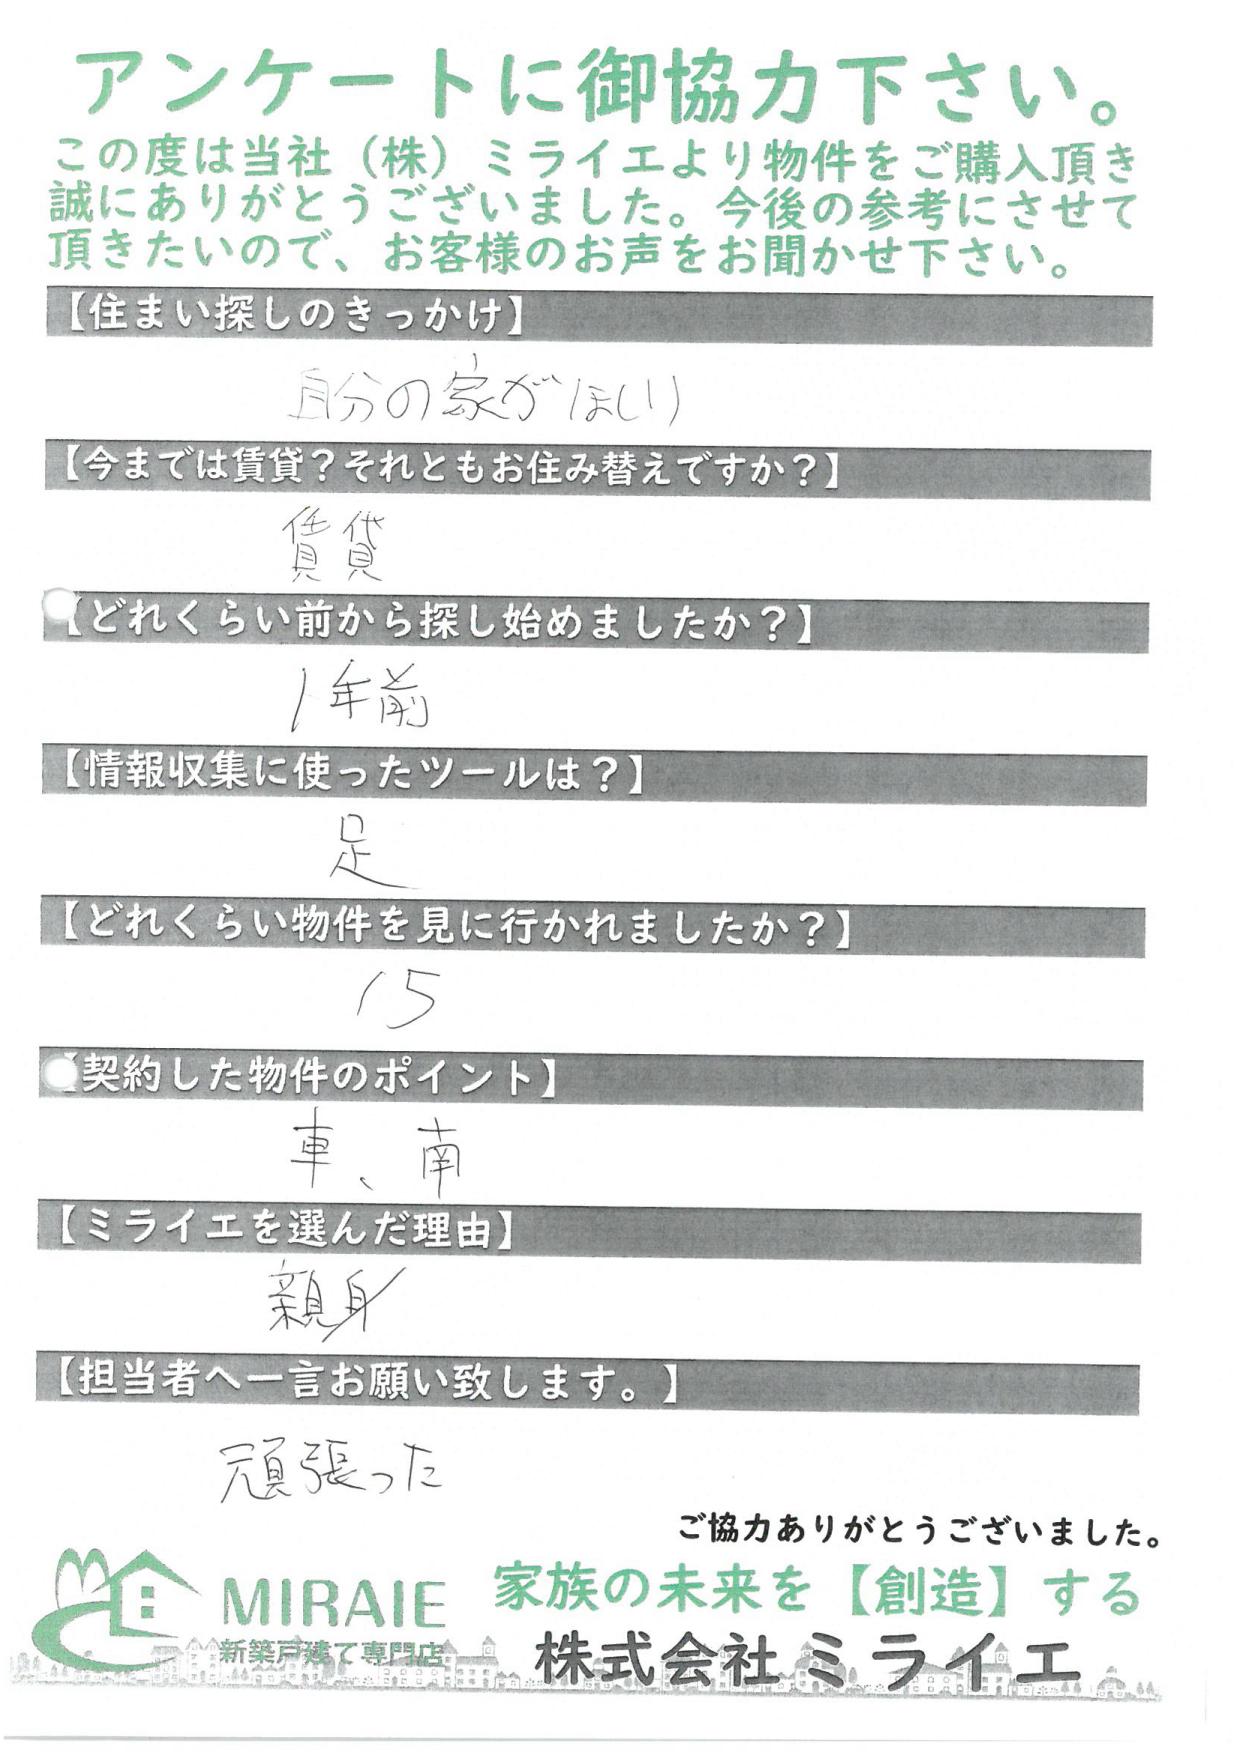 アンケートに御協力下さい。
この度は当社（株）ミライエより物件をご購入頂き
誠にありがとうございました。今後の参考にさせて
頂きたいので、お客様のお声をお聞かせ下さい。
【住まい探しのきっかけ】
自分の家がほしい
【今までは賃貸？それともお住み替えですか？】
賃貸
【どれくらい前から探し始めましたか？】
1年前
【情報収集に使ったツールは？】
足
【どれくらい物件を見に行かれましたか？】
15
【契約した物件のポイント】
車、南
【ミライエを選んだ理由】
親身
【担当者へ一言お願い致します。】
頑張った
ご協力ありがとうございました。
MIRAIE
新築戸建て専門店
家族の未来を【創造】する
株式会社ミライエ